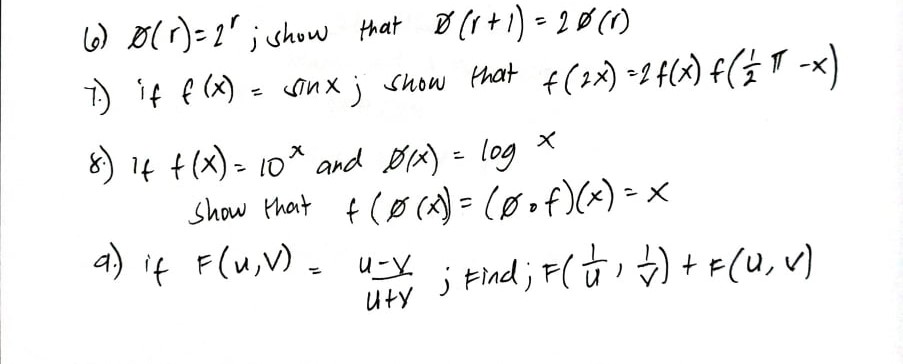 6) Ø(r)=2^r ; show that Ø(r+1) = 2Ø(r)
7.) if f(x) = sinx ; show that f(2x) =2f(x) f(½π -x)
8.) If f(x) = 10^x and Ø(x) = log x
show that f(Ø(x)) = (Ø∘f)(x) = x
9.) if F(u,v) = (u-y)/(u+y) ; Find ; F(1/u , 1/v) + F(u,v)